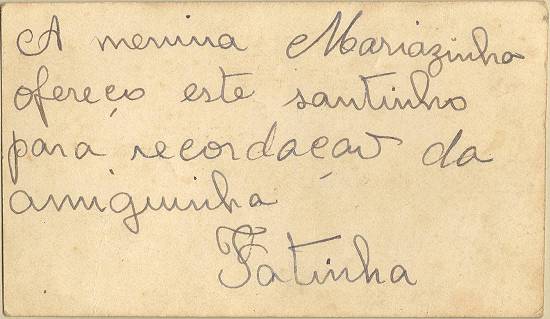 A menina Mariazinha
ofereço este santinho
para recordação da
amiguinha
Fatinha